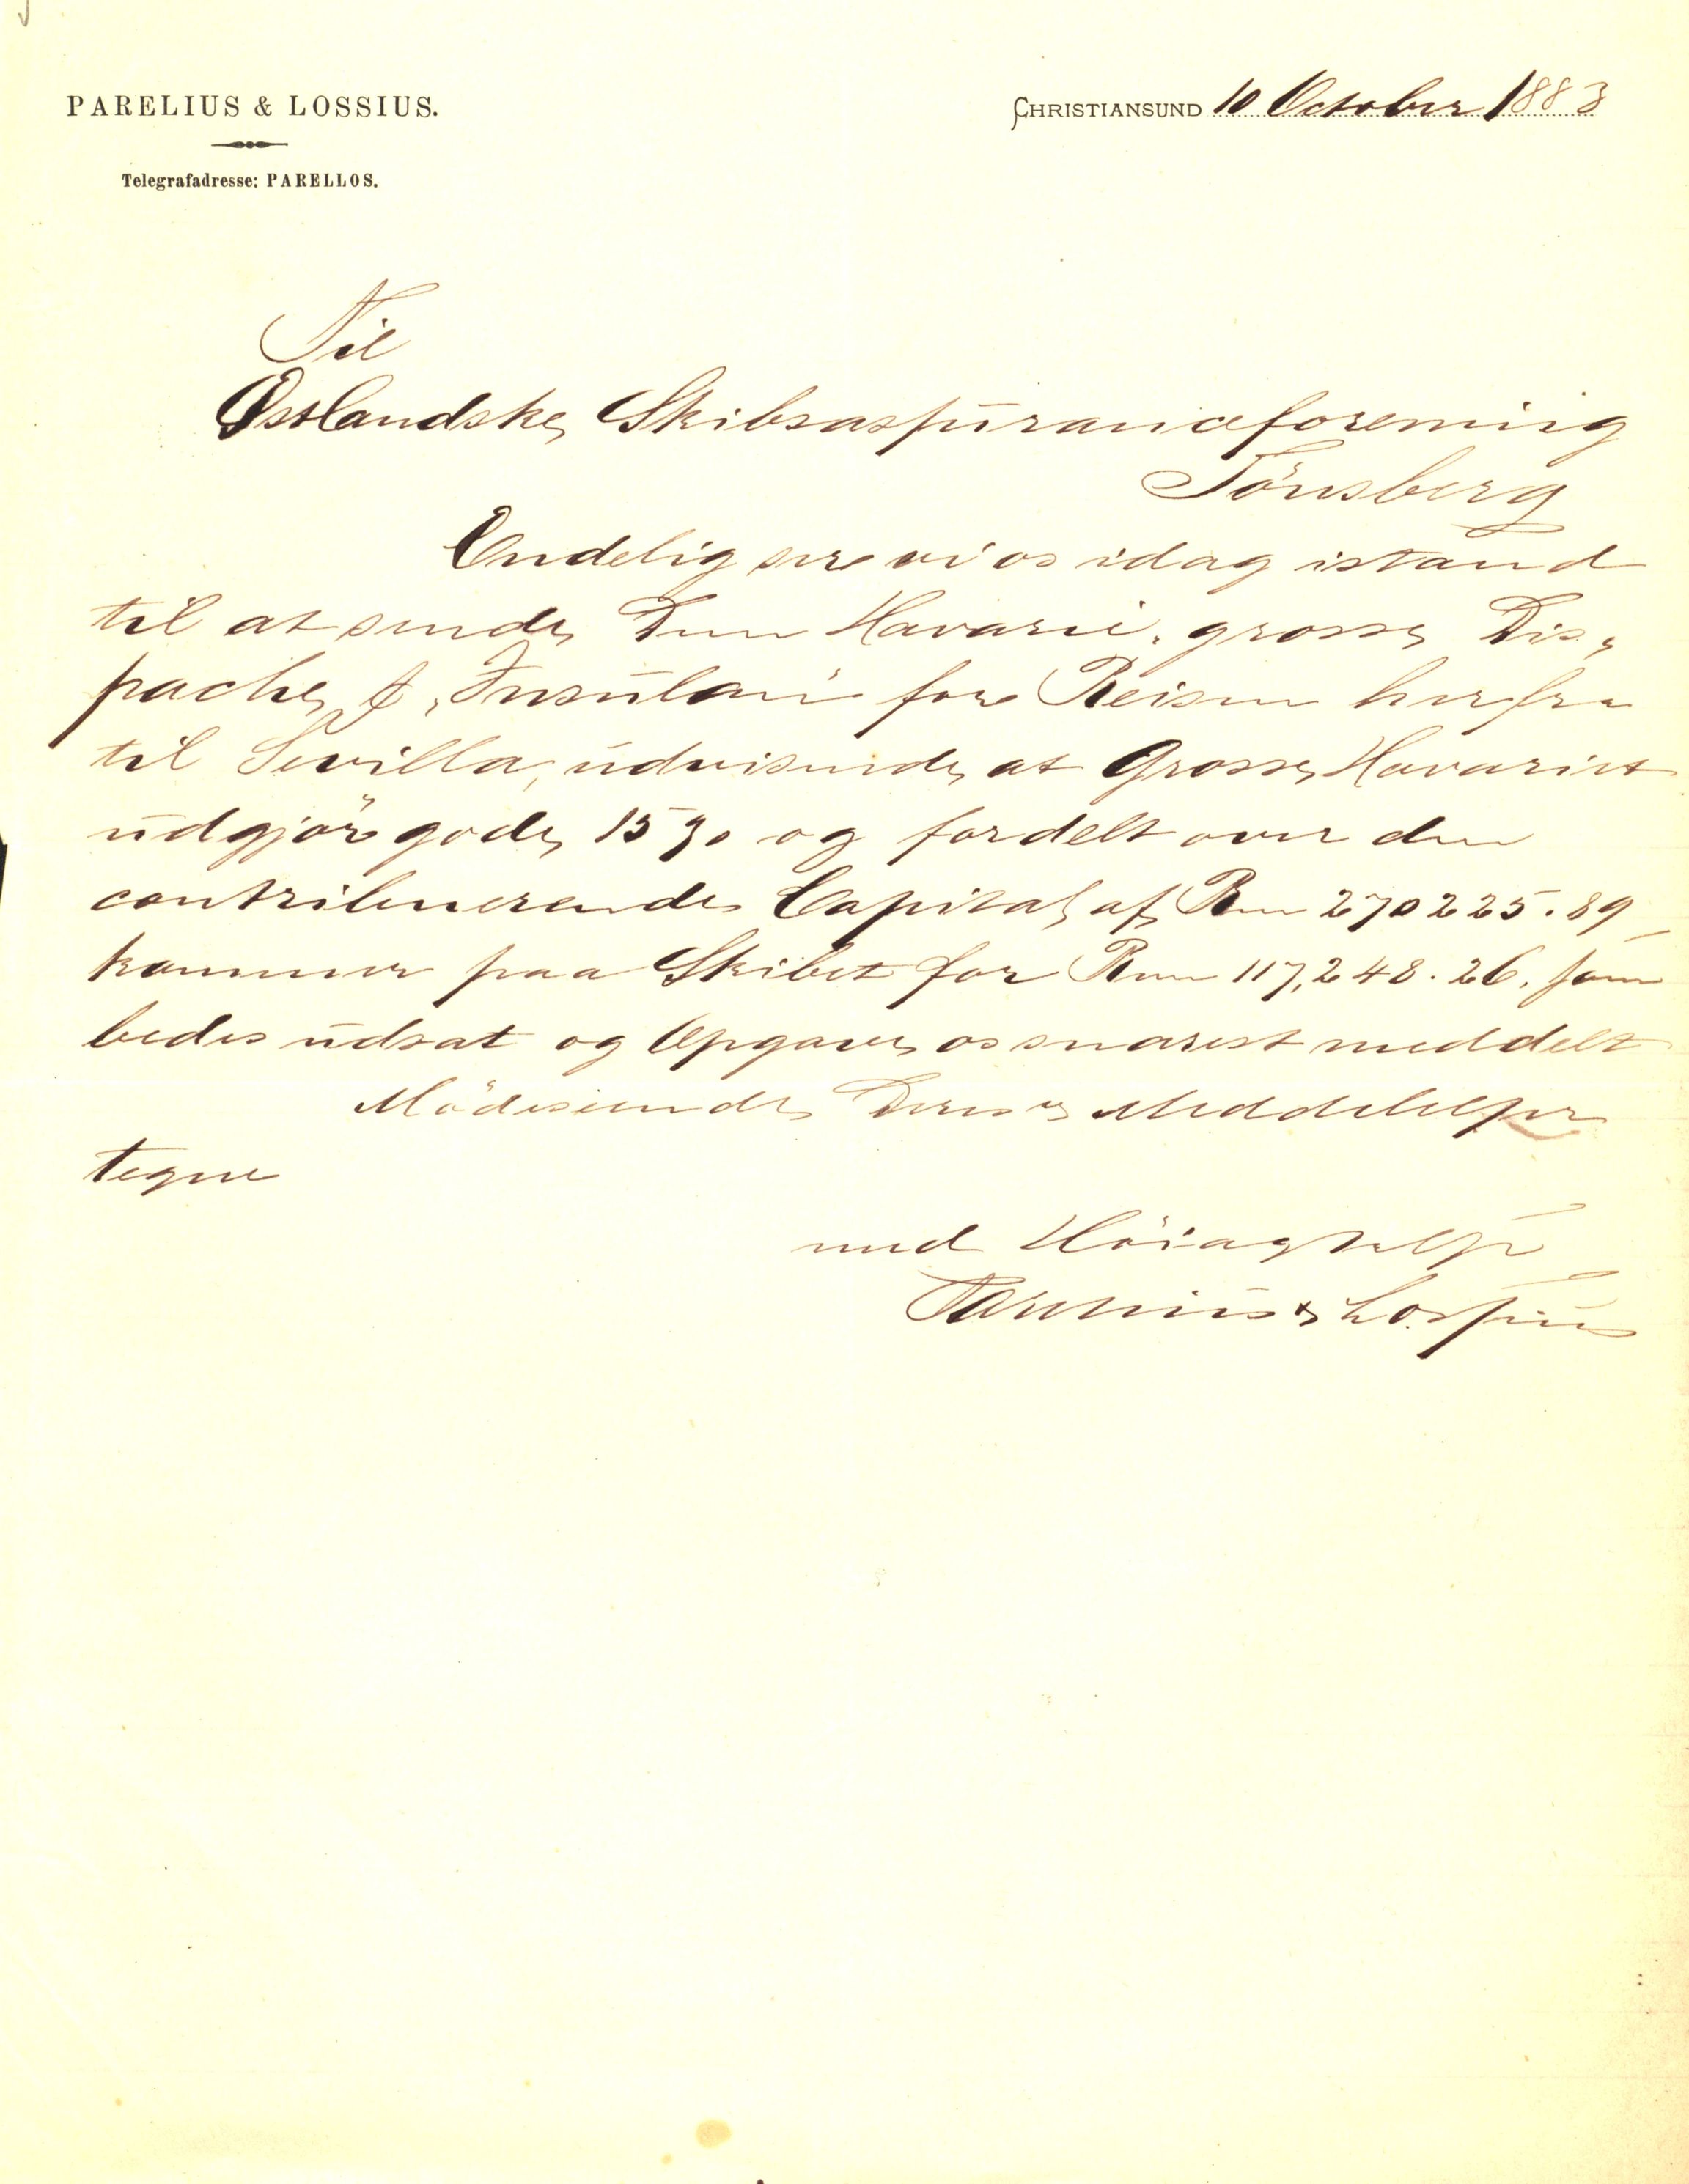 PARELIUS & LOSSIUS.
Telegrafadresse: PARELLOS.
CHRISTIANSUND 10 October 1883
Til
Östlandske Skibsassuranceforening
Tönsberg
Endelig see vi os idag istand
til at sende Dem Havarie-grosse Dis-
pache f. "Insulan" for Reisen herfra
til Sevilla, udvisende at Grosse Havariet
udgjör gode 15% og fordelt over den
contribuerende Capital af Rm 270225.89
kommer paa Skibet for Rm 117,248.26, som
bedes udsat og Opgave os snarest meddelt
Mödeseende Deres Meddelelser
tegne
med Höiagtelse
Parelius & Lossius